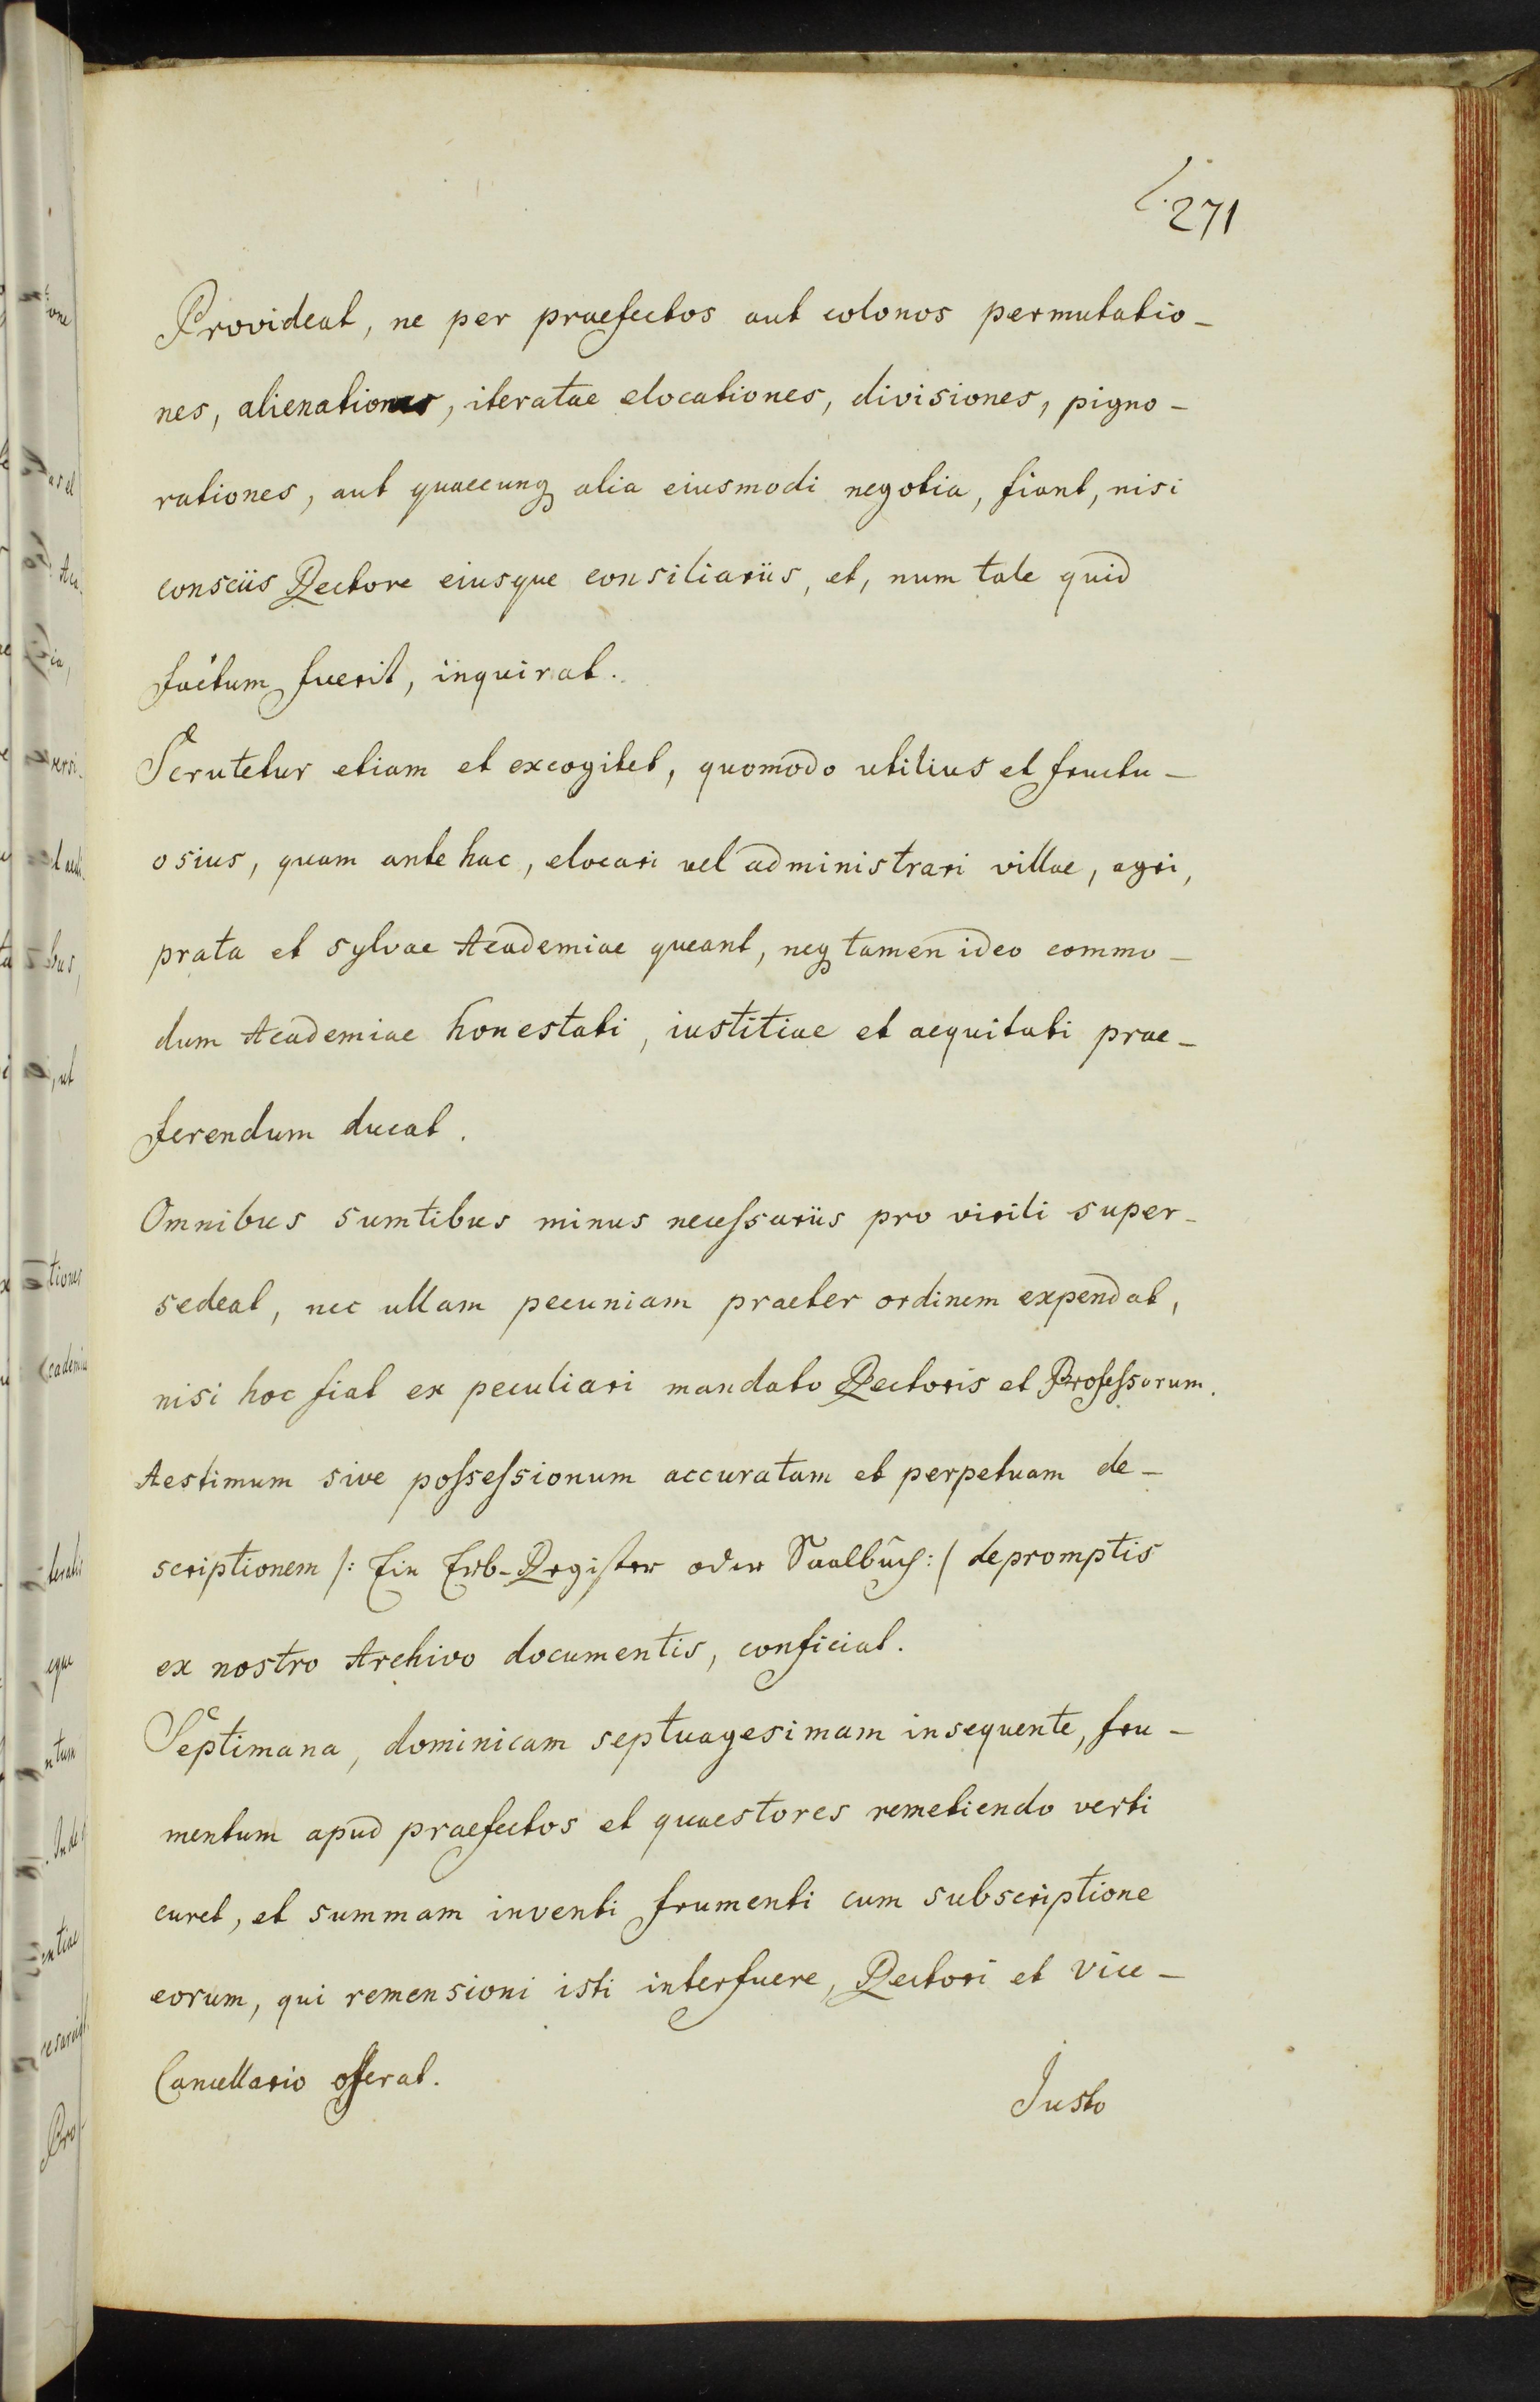 271
Provideat, ne per praefectos aut colonos permutatio-
nes, alienationes, iteratae elocationes, divisiones, pigno-
rationes, aut quaecunq alia eiusmodi negotia, fiant, nisi
consciis Rectore eiusque consiliariis, et, num tale quid
factum fuerit, inquirat.
Scrutetur etiam et excogitet, quomodo utilius et fructu-
osius, quam ante hac, elocari vel administrari villae, agri,
prata et sylvae Academiae queant, neq tamen ideo commo-
dum Academiae honestati, iustitiae et aequitati prae-
ferendum ducat.
Omnibus sumtibus minus necessariis pro virili super-
sedeat, nec ullam pecuniam praeter ordinem expendat,
nisi hoc fiat ex peculiari mandato Rectoris et Professorum.
Aestimum sive possessionum accuratam et perpetuam de-
scriptionem /: Ein Erb-Register oder Saalbuch :/ depromptis
ex nostro Archivo documentis, conficiat.
Septimana, dominicam septuagesimam insequente, fru-
mentum apud praefectos et quaestores remetiendo verti
curet, et summam inventi frumenti cum subscriptione
eorum, qui remensioni isti interfuere, Rectori et Vice-
Cancellario offerat.
Justo